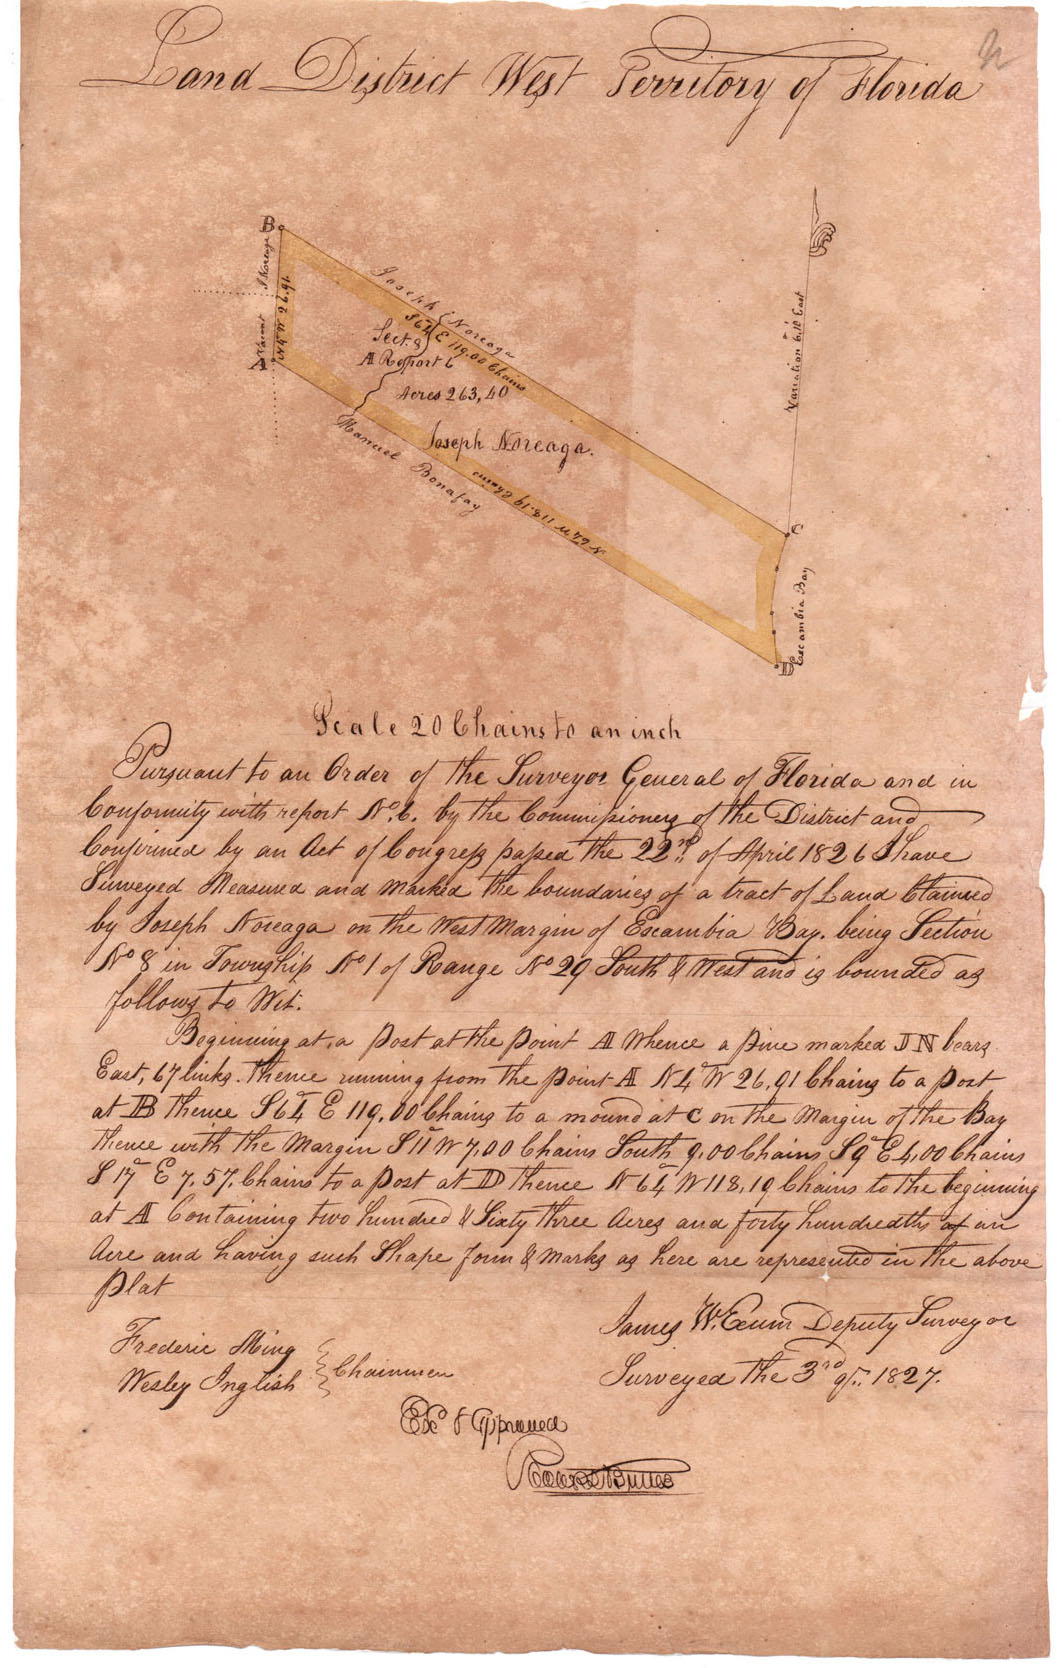 Land District West Territory of Florida
B
J Noreaga
Vacant
N4°W 26.91
A
Joseph Noreaga
S 64 E 119.00 Chains
Sect. 8
A Report 6
Acres 263,40
Joseph Noreaga.
Manuel Bonafay
N 64 W 118.19 Chains
Variation 6.10 East
C
Escambia Bay
D
Scale 20 Chains to an inch
Pursuant to an Order of the Surveyor General of Florida and in
Conformity with report No. 6. by the Commissioners of the District and
Confirmed by an Act of Congress passed the 22nd. of April 1826 I have
Surveyed Measured and marked the boundaries of a tract of Land Claimed
by Joseph Noreaga on the West Margin of Escambia Bay. being Section
No 8 in Township No 1 of Range No 29 South & West and is bounded as
follows to Wit.
Beginning at a post at the point A Whence a pine marked JN bears
East, 67 links. thence running from the point A N4°W 26,91 Chains to a post
at B thence S64° E 119,00 Chains to a mound at C on the Margin of the Bay
thence with the Margin S11°W 7,00 Chains South 9,00 Chains S9°E 4,00 Chains
S 17° E 7,57. Chains to a post at D thence N 64° W 118,19 Chains to the beginning
at A Containing two hundred & Sixty three Acres and forty hundredths of an
Acre and having such Shape form & Marks as here are represented in the above
Plat
James W. Exum Deputy Surveyor
Frederic Ming
Wesley Inglish } Chainmen
Surveyed the 3rd 1827.
Ex & Approved